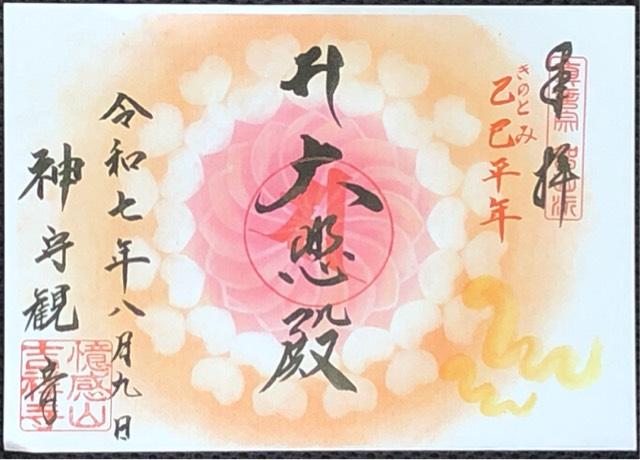 奉拝
眞言宗
きのとみ
乙巳平年
大悲殿
令和七年八月九日
神守観音
憶感山
吉祥寺